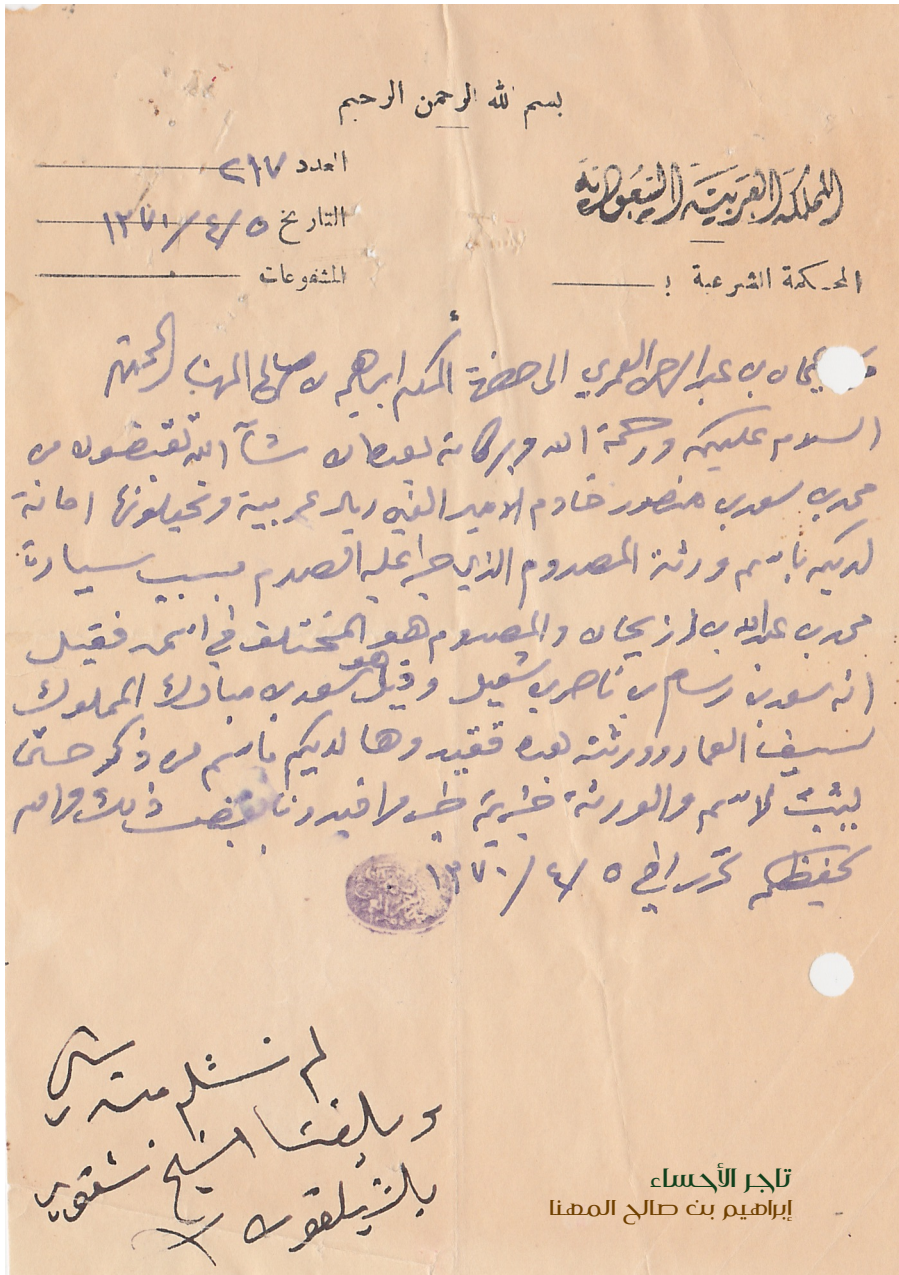 بسم الله الرحمن الرحيم
المملكة العربية السعودية
العدد ٢١٧
التاريخ ٥/٤/١٣٧٠
المحكمة الشرعية بـ
المشفوعات
بن عبدالرحمن العمري الى حضرة المكرم ابراهيم بن صالح المهنا المحترم
السلام عليكم ورحمة الله وبركاته بعده ان شآ الله تقبضون من
محمد بن سعود بن منصور خادم الامير الفين ريال عربية وتخلونها امانة
لديكم باسم ورثة المصدوم الذي جرا عليه الصدم بسبب سيارة
محمد بن عبدالله بن والمصدوم هو المختلف في اسمه فقيل
انه سعود بن بن ناصر بن وقيل هو سعود بن مبارك المملوك
لسيف العمار وورثته هذه فقيدوها لديكم باسم من ذكر حتى
يثبت الاسم والورثة افيدونا بقبض ذلك والله
يحفظكم تحرر في ٥/٤/١٣٧٠
لم نستلم منه شي
وبلغنا الشيخ
بالتيلفون
تاجر الأحساء
إبراهيم بن صالح المهنا